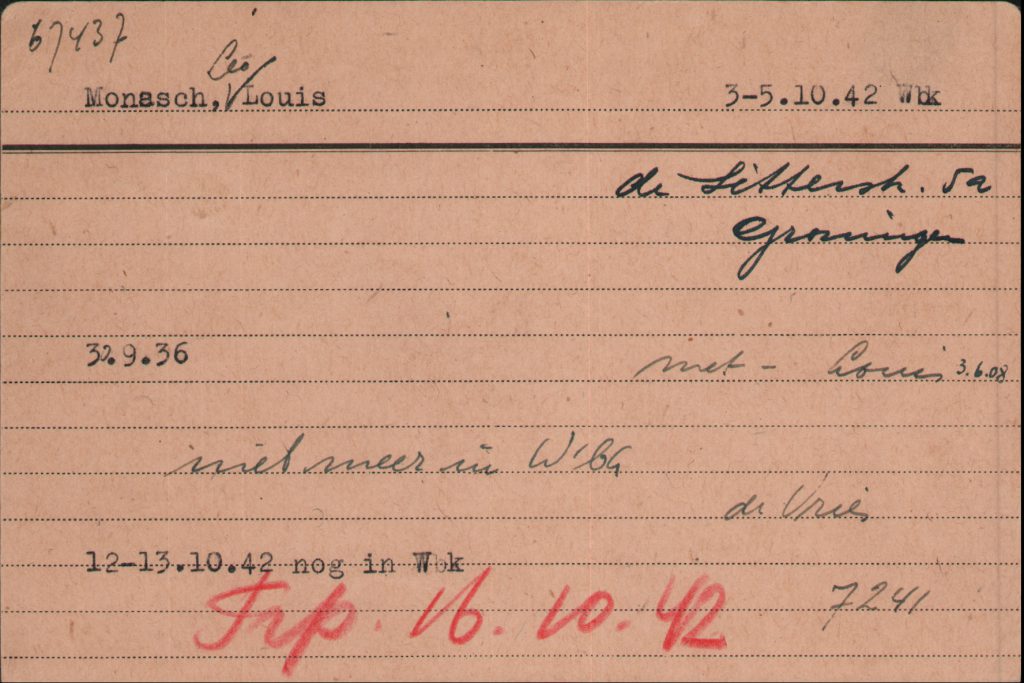 67437
Leo
Monasch, Louis 3-5.10.42 Wbk
de Sitterstr. 5a
Groningen
.9.36
met - Louis 3.6.08
niet meer in W'bk
de Vries
12-13.10.42 nog in Wbk
Trp. 16.10.42
7241